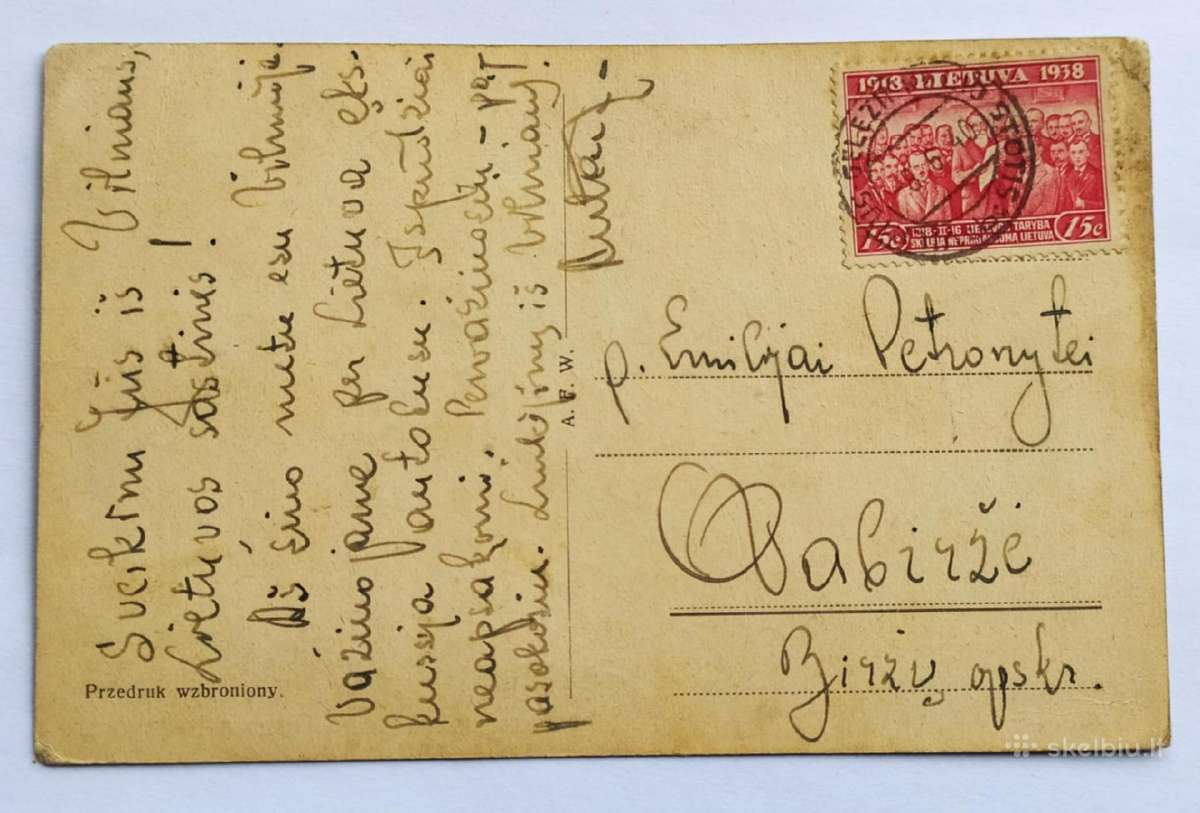 Sveikinu Jus iš Vilniaus,
Lietuvos sostinės!
Aš šiuo metu esu Vilniuje.
Važinojame per Lietuva eks-
kursija autobusu. Įspūdžiai
neapsakomi. Pervažiuosiu - pat
pasakosiu. Linkėjimų iš Vilniaus!
Przedruk wzbroniony.
A. F. W.
1918 LIETUVA 1938
15c 1918-II-16 LIETUVOS TARYBA 15c
SKELBIA NEPRIKLAUSOMA LIETUVA
STOTIS
6 40
p. Emilijai Petronytei
Pabiržė
Biržų apskr.
skelbiu.lt